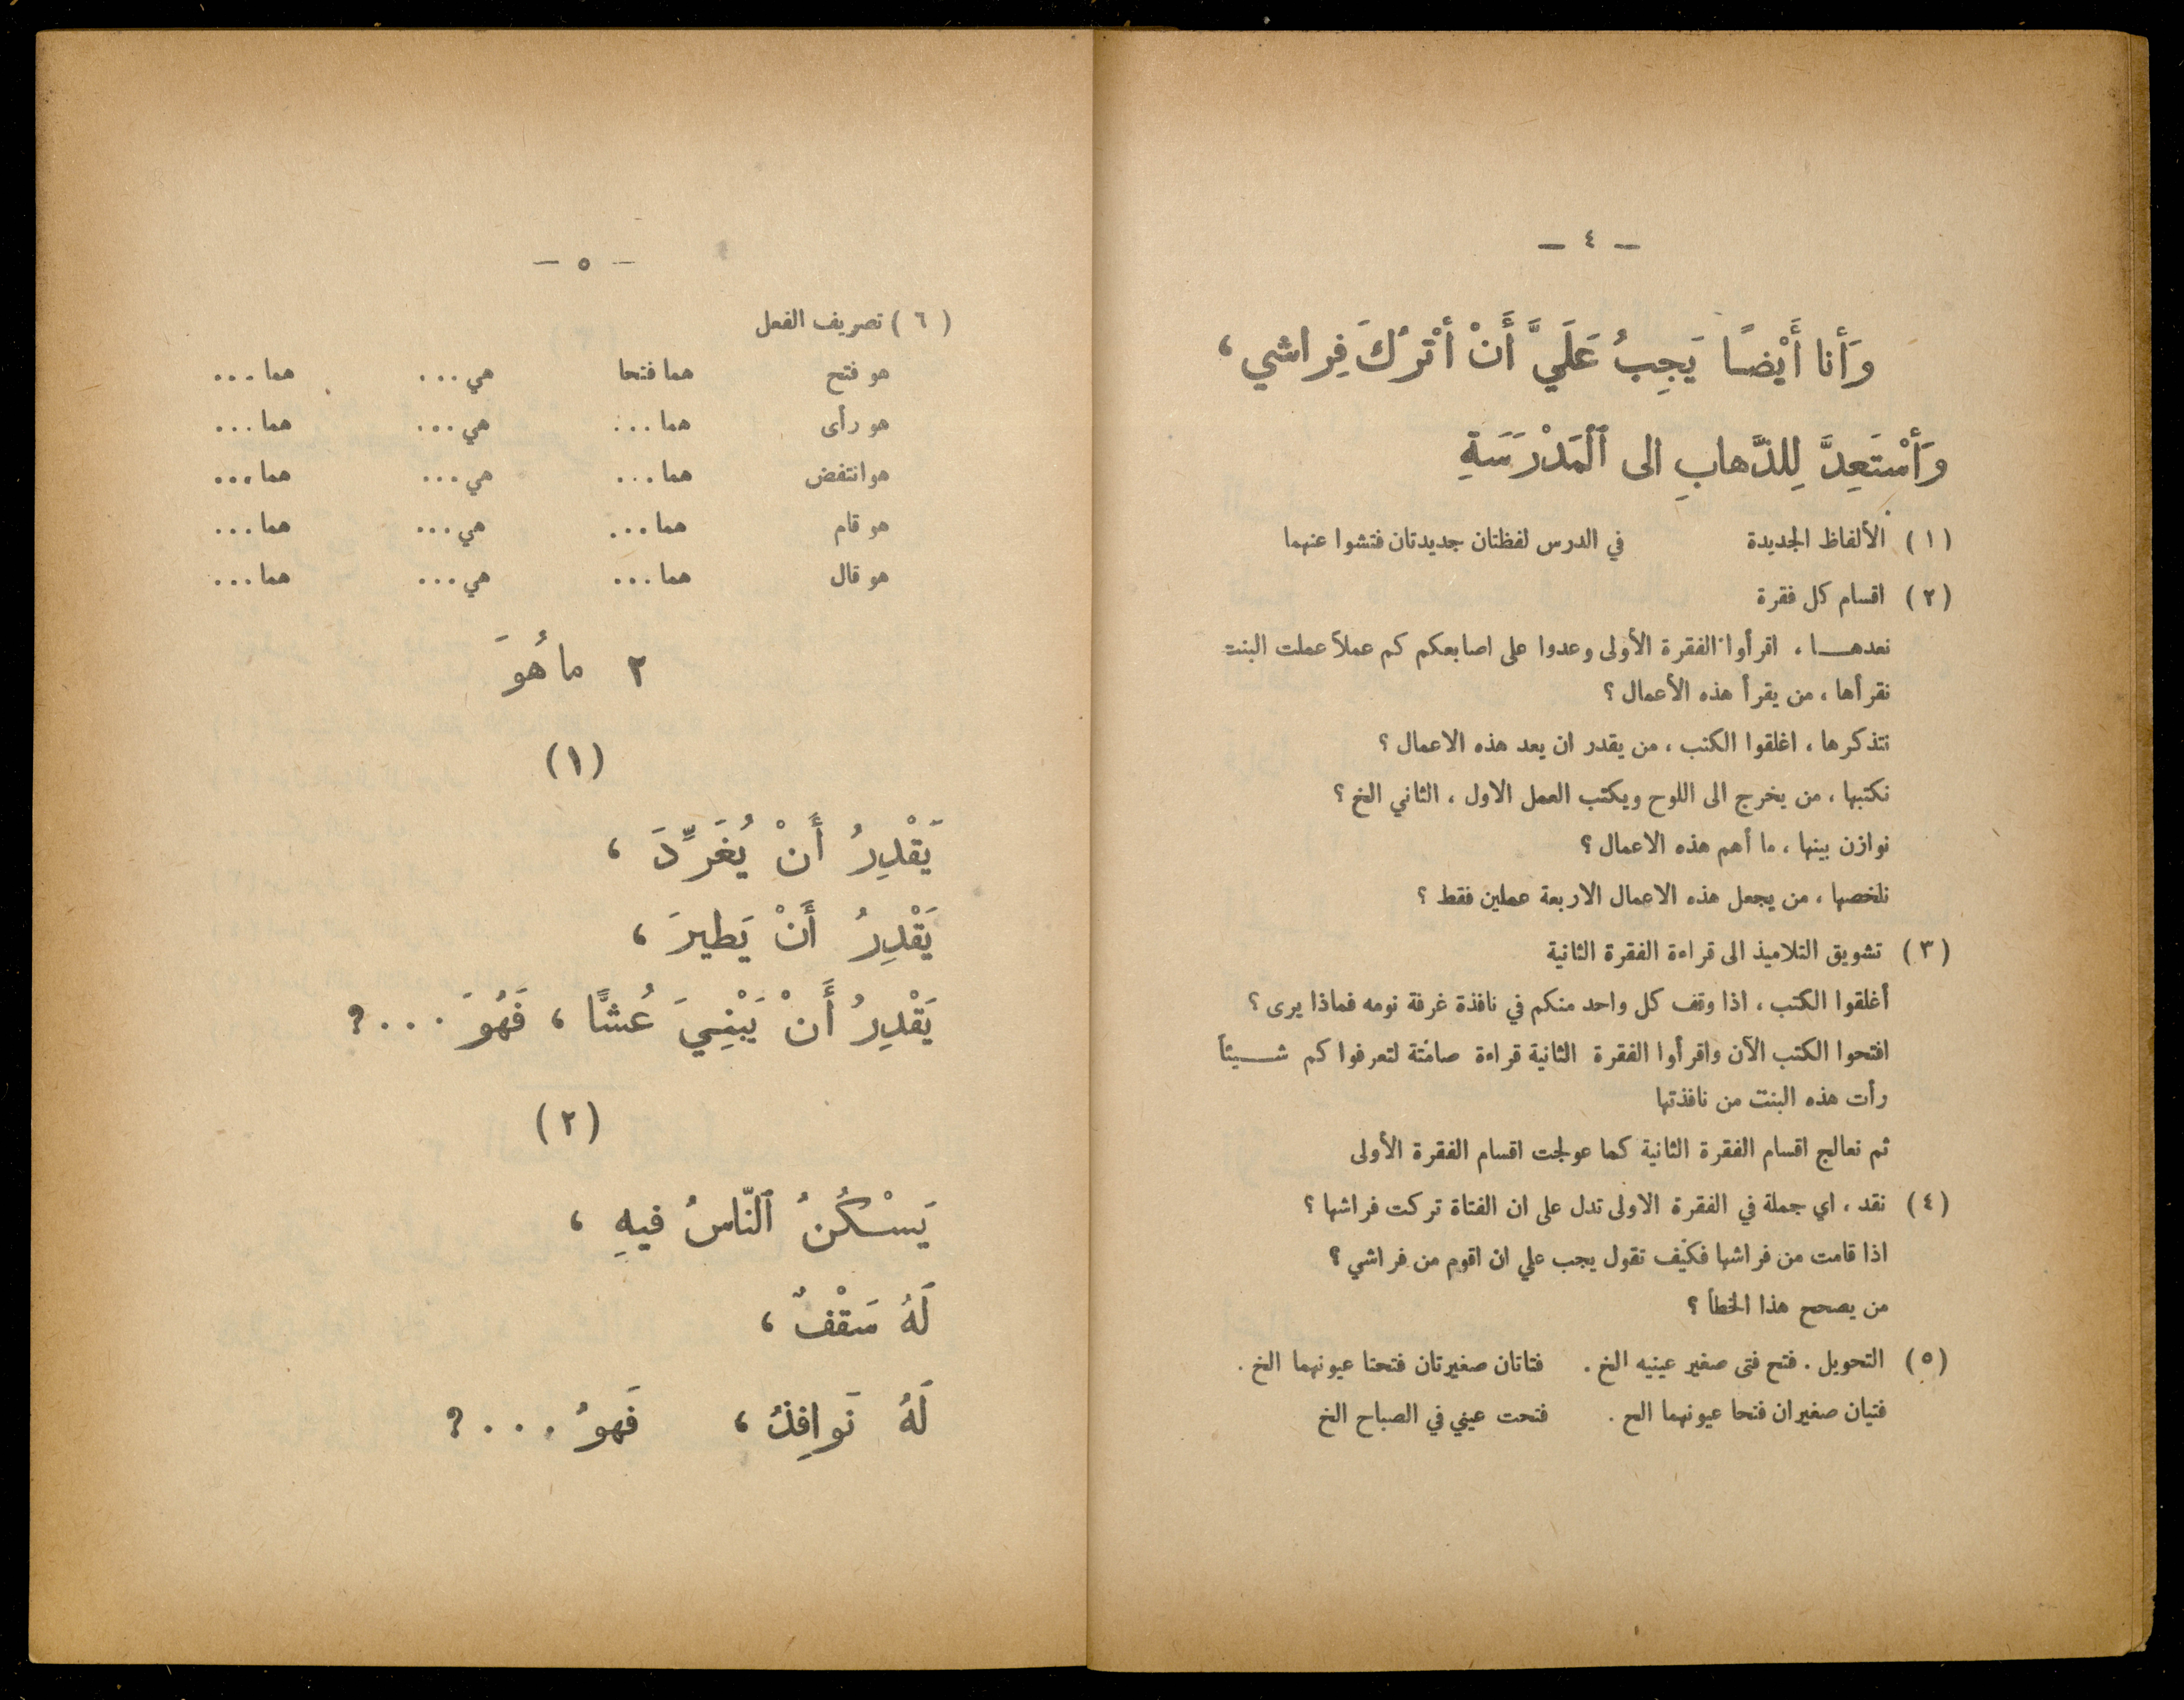 — ٤ —
وَأَنا أَيْضًا يَجِبُ عَلَيَّ أَنْ أَتْرُكَ فِراشي ،
وَأَسْتَعِدَّ لِلذَّهابِ الى ٱلْمَدْرَسَةِ
(١) الألفاظ الجديدة في الدرس لفظتان جديدتان فتشوا عنهما
(٢) اقسام كل فقرة
نعدهـــا ، اقرأوا الفقرة الأولى وعدوا على اصابعكم كم عملاً عملت البنت
نقرأها ، من يقرأ هذه الأعمال ؟
نتذكرها ، اغلقوا الكتب ، من يقدر ان يعد هذه الاعمال ؟
نكتبها ، من يخرج الى اللوح ويكتب العمل الاول ، الثاني الخ ؟
نوازن بينها ، ما أهم هذه الاعمال ؟
نلخصها ، من يجعل هذه الاعمال الاربعة عملين فقط ؟
(٣) تشويق التلاميذ الى قراءة الفقرة الثانية
أغلقوا الكتب ، اذا وقف كل واحد منكم في نافذة غرفة نومه فماذا يرى ؟
افتحوا الكتب الآن واقرأوا الفقرة الثانية قراءة صامتة لتعرفوا كم شـــيئاً
رأت هذه البنت من نافذتها
ثم نعالج اقسام الفقرة الثانية كما عولجت اقسام الفقرة الأولى
(٤) نقد ، اي جملة في الفقرة الاولى تدل على ان الفتاة تركت فراشها ؟
اذا قامت من فراشها فكيف تقول يجب علي ان اقوم من فراشي ؟
من يصحح هذا الخطأ ؟
(٥) التحويل . فتح فتى صغير عينيه الخ . فتاتان صغيرتان فتحتا عيونهما الخ .
فتيان صغيران فتحا عيونهما الخ . فتحت عيني في الصباح الخ
— ٥ —
(٦) تصريف الفعل
هو فتح هما فتحا هي ... هما ...
هو رأى هما ... هي ... هما ...
هو انتفض هما ... هي ... هما ...
هو قام هما ... هي ... هما ...
هو قال هما ... هي ... هما ...
٢ ما هُوَ
(١)
يَقْدِرُ أَنْ يُغَرِّدَ ،
يَقْدِرُ أَنْ يَطيرَ ،
يَقْدِرُ أَنْ يَبْنِيَ عُشًّا ، فَهُوَ ... ؟
(٢)
يَسْكُنُ ٱلنّاسُ فيهِ ،
لَهُ سَقْفٌ ،
لَهُ نَوافِذُ ، فَهوُ ... ؟